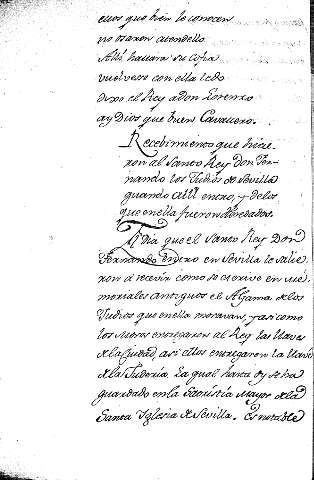 ellos que bien lo conocen
no osaron atendello
Alli hallara su cofia
vuelvese con ella ledo
dixo el Rey a don Lorenzo
ay Dios que buen Cavallero.
Recebimiento que hicie-
ron al Santo Rey Don Fer-
nando los Judios de Sevilla
quando alli entro, y delos
que en ella fueron heredados.
El dia que el Santo Rey Don
Fernando entro en Sevilla lo salie
ron á recevir como se escrive en Me-
moriales antiguos el Aljama de los
Judios que en ella moravan, y asi como
los Moros entregaron al Rey las llaves
de la Ciudad, asi ellos entregaron la llave
de la Juderia, La qual hasta oy se ha
guardado en la Sacristia Mayor de la
Santa Yglesia de Sevilla. Es notable